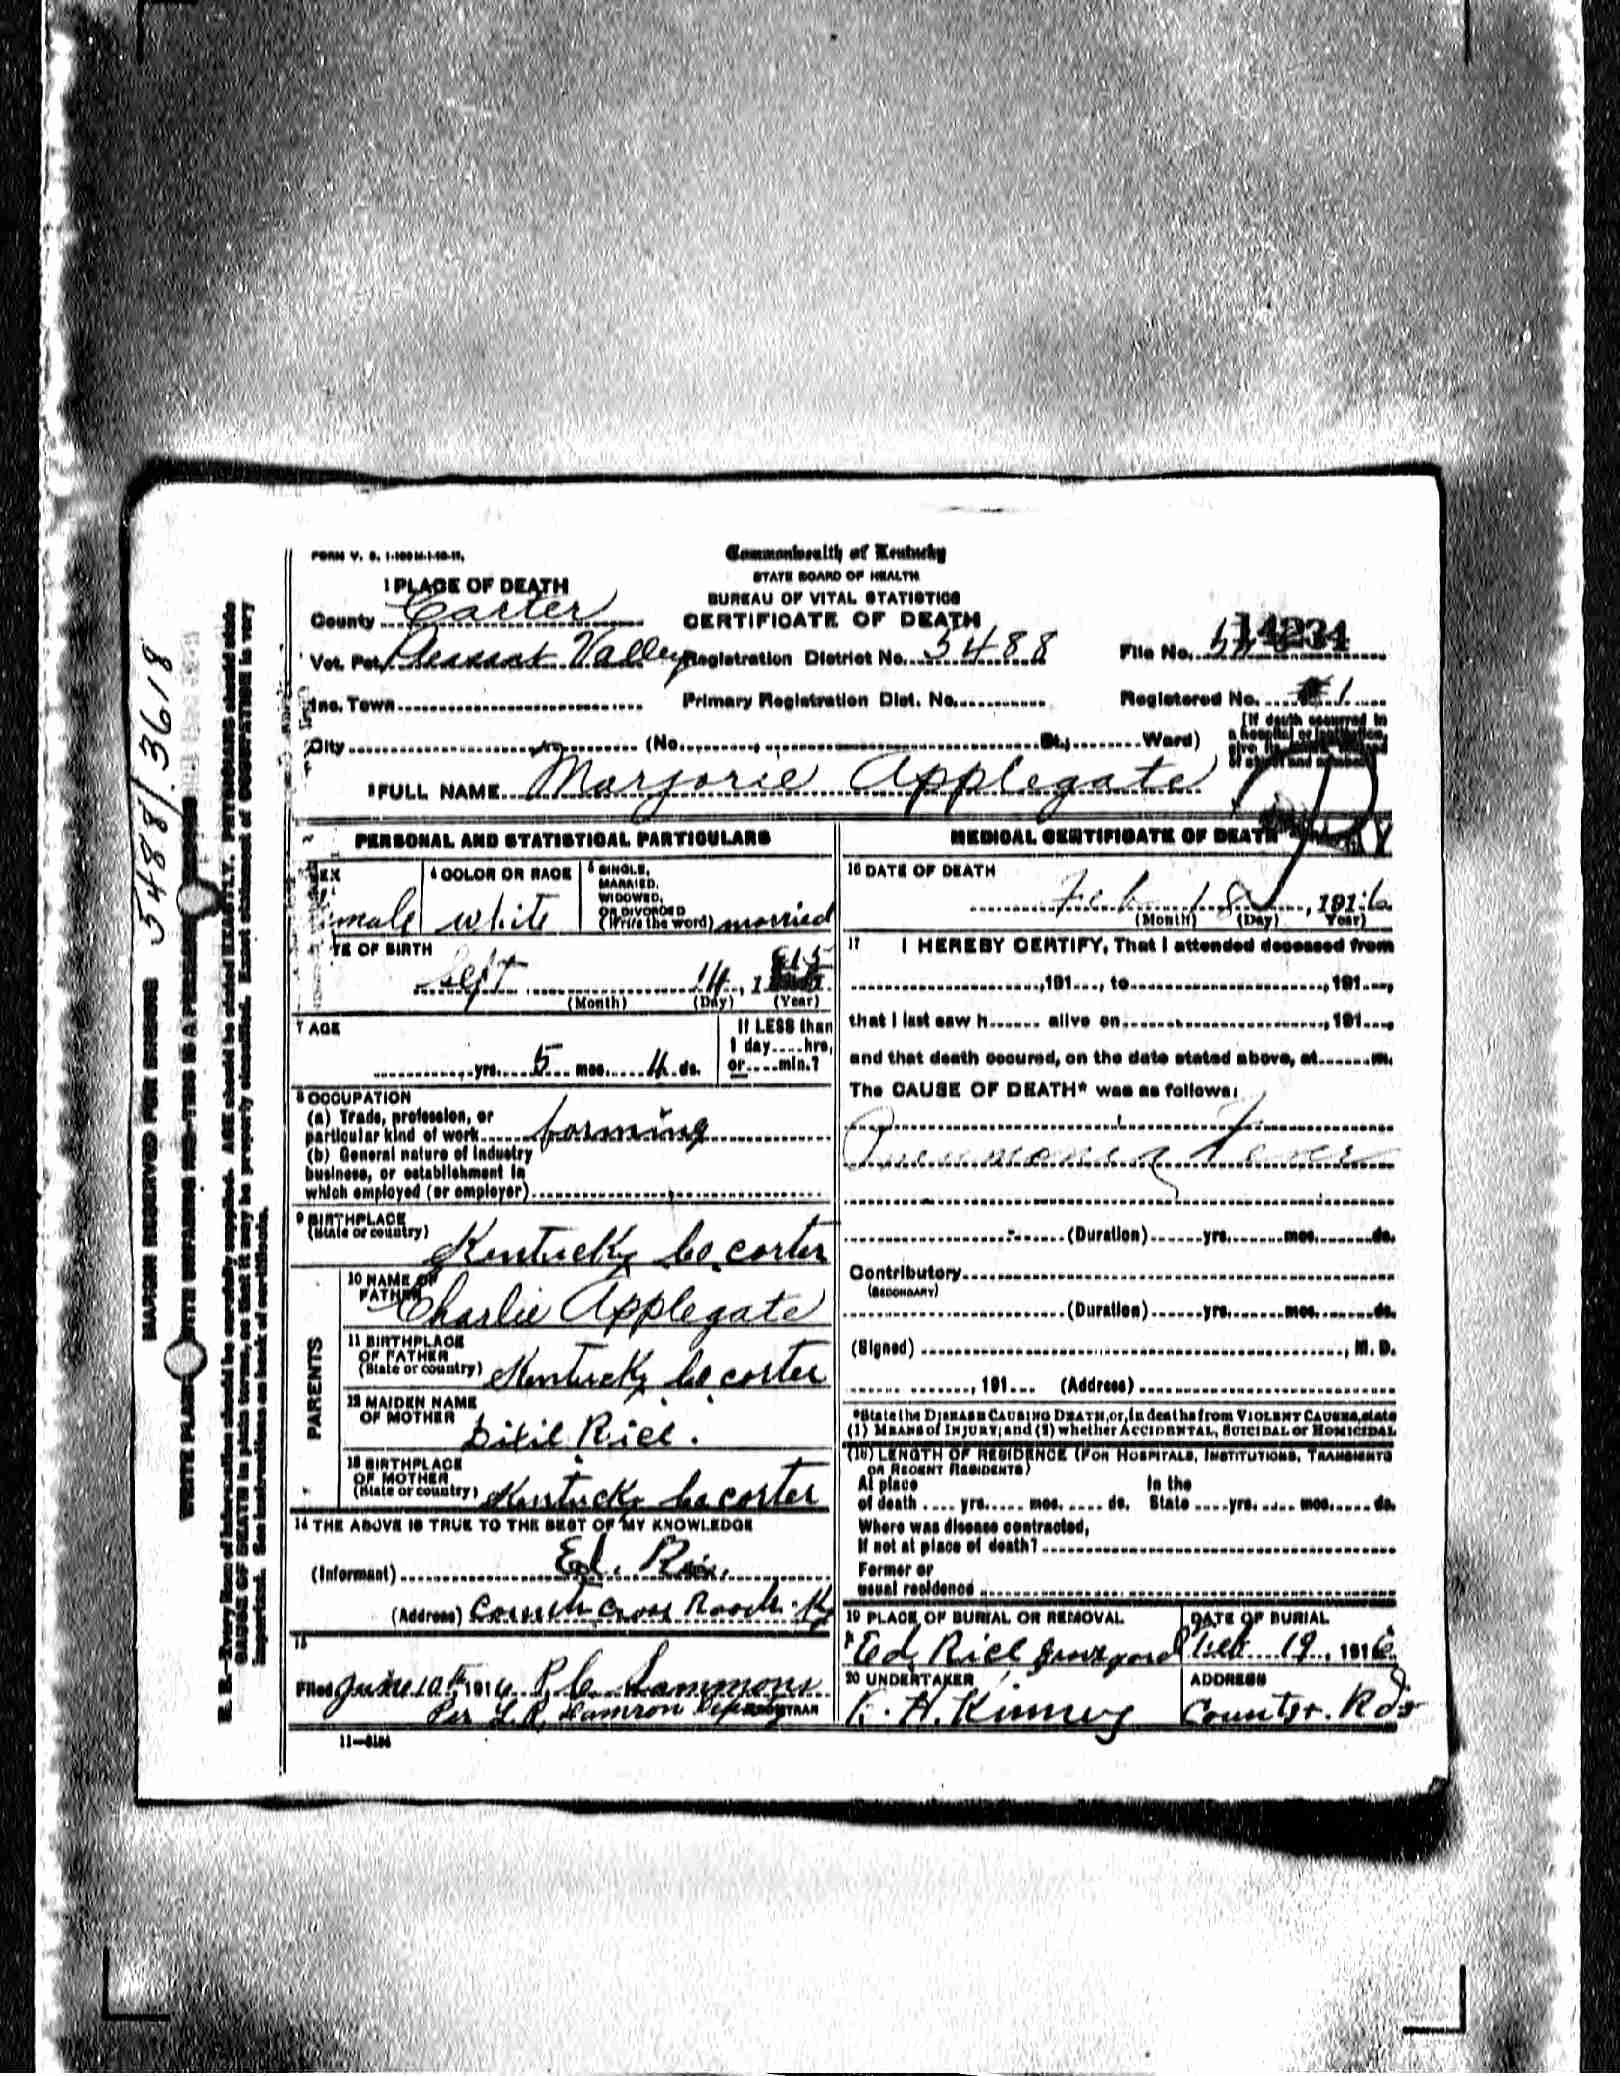 FORM V. S. 1-100M-1-10-11.
Commonwealth of Kentucky
STATE BOARD OF HEALTH
BUREAU OF VITAL STATISTICS
CERTIFICATE OF DEATH
1 PLACE OF DEATH
County Carter
Vot. Pct. Pleasant Valley Registration District No. 5488 File No. 14234
Inc. Town Primary Registration Dist. No. Registered No. 1
City (No. St.; Ward)
[If death occurred in
a hospital or institution,
FULL NAME Marjorie Applegate
PERSONAL AND STATISTICAL PARTICULARS
male
4 COLOR OR RACE
white
5 SINGLE,
MARRIED,
WIDOWED,
OR DIVORCED
(Write the word) married
TE OF BIRTH
Sept 14, 1
(Month) (Day) (Year)
7 AGE
yrs. 5 mos. 4 ds.
If LESS than
1 day....hrs,
or....min.?
8 OCCUPATION
(a) Trade, profession, or
particular kind of work farming
(b) General nature of industry
business, or establishment in
which employed (or employer)
9 BIRTHPLACE
(State or country) Kentucky Co carter
PARENTS
10 NAME OF
FATHER Charlie Applegate
11 BIRTHPLACE
OF FATHER
(State or country) Kentucky Co corter
12 MAIDEN NAME
OF MOTHER
Rice.
13 BIRTHPLACE
OF MOTHER
(State or country) Kentucky Co corter
14 THE ABOVE IS TRUE TO THE BEST OF MY KNOWLEDGE
(Informant) Ed.
(Address) Cross Roads Ky
15
Filed June 10th, 1916 Sammons
Per L.R. Damron Deputy REGISTRAR
11-3184
MEDICAL CERTIFICATE OF DEATH
16 DATE OF DEATH
Feb 18, 1916
(Month) (Day) Year)
17 I HEREBY CERTIFY, That I attended deceased from
,191..., to ,191...,
that I last saw h...... alive on ,191...,
and that death occured, on the date stated above, at......m.
The CAUSE OF DEATH* was as follows:
Pneumonia Fever
(Duration)......yrs.......mos.......ds.
Contributory
(SECONDARY)
(Duration)......yrs.......mos.......ds.
(Signed) , M. D.
, 191... (Address)
*State the DISEASE CAUSING DEATH, or, in deaths from VIOLENT CAUSES, state
(1) MEANS of INJURY; and (2) whether ACCIDENTAL, SUICIDAL or HOMICIDAL
(18) LENGTH OF RESIDENCE (FOR HOSPITALS, INSTITUTIONS, TRANSIENTS
OR RECENT RESIDENTS)
At place In the
of death .... yrs..... mos..... ds. State ....yrs..... mos..... ds.
Where was disease contracted,
If not at place of death?
Former or
usual residence
19 PLACE OF BURIAL OR REMOVAL
Ed Rice graveyard
DATE OF BURIAL
Feb 19, 1916
20 UNDERTAKER
H. Kinney
ADDRESS
Counter. Rds
5488/.3618
MARGIN RESERVED FOR BINDING
WRITE PLAINLY WITH UNFADING INK—THIS IS A PERMANENT
N. B.—Every item of information should be carefully supplied. AGE should be stated EXACTLY. PHYSICIANS should state
CAUSE OF DEATH in plain terms, so that it may be properly classified. Exact statement of OCCUPATION is very
important. See instructions on back of certificate.